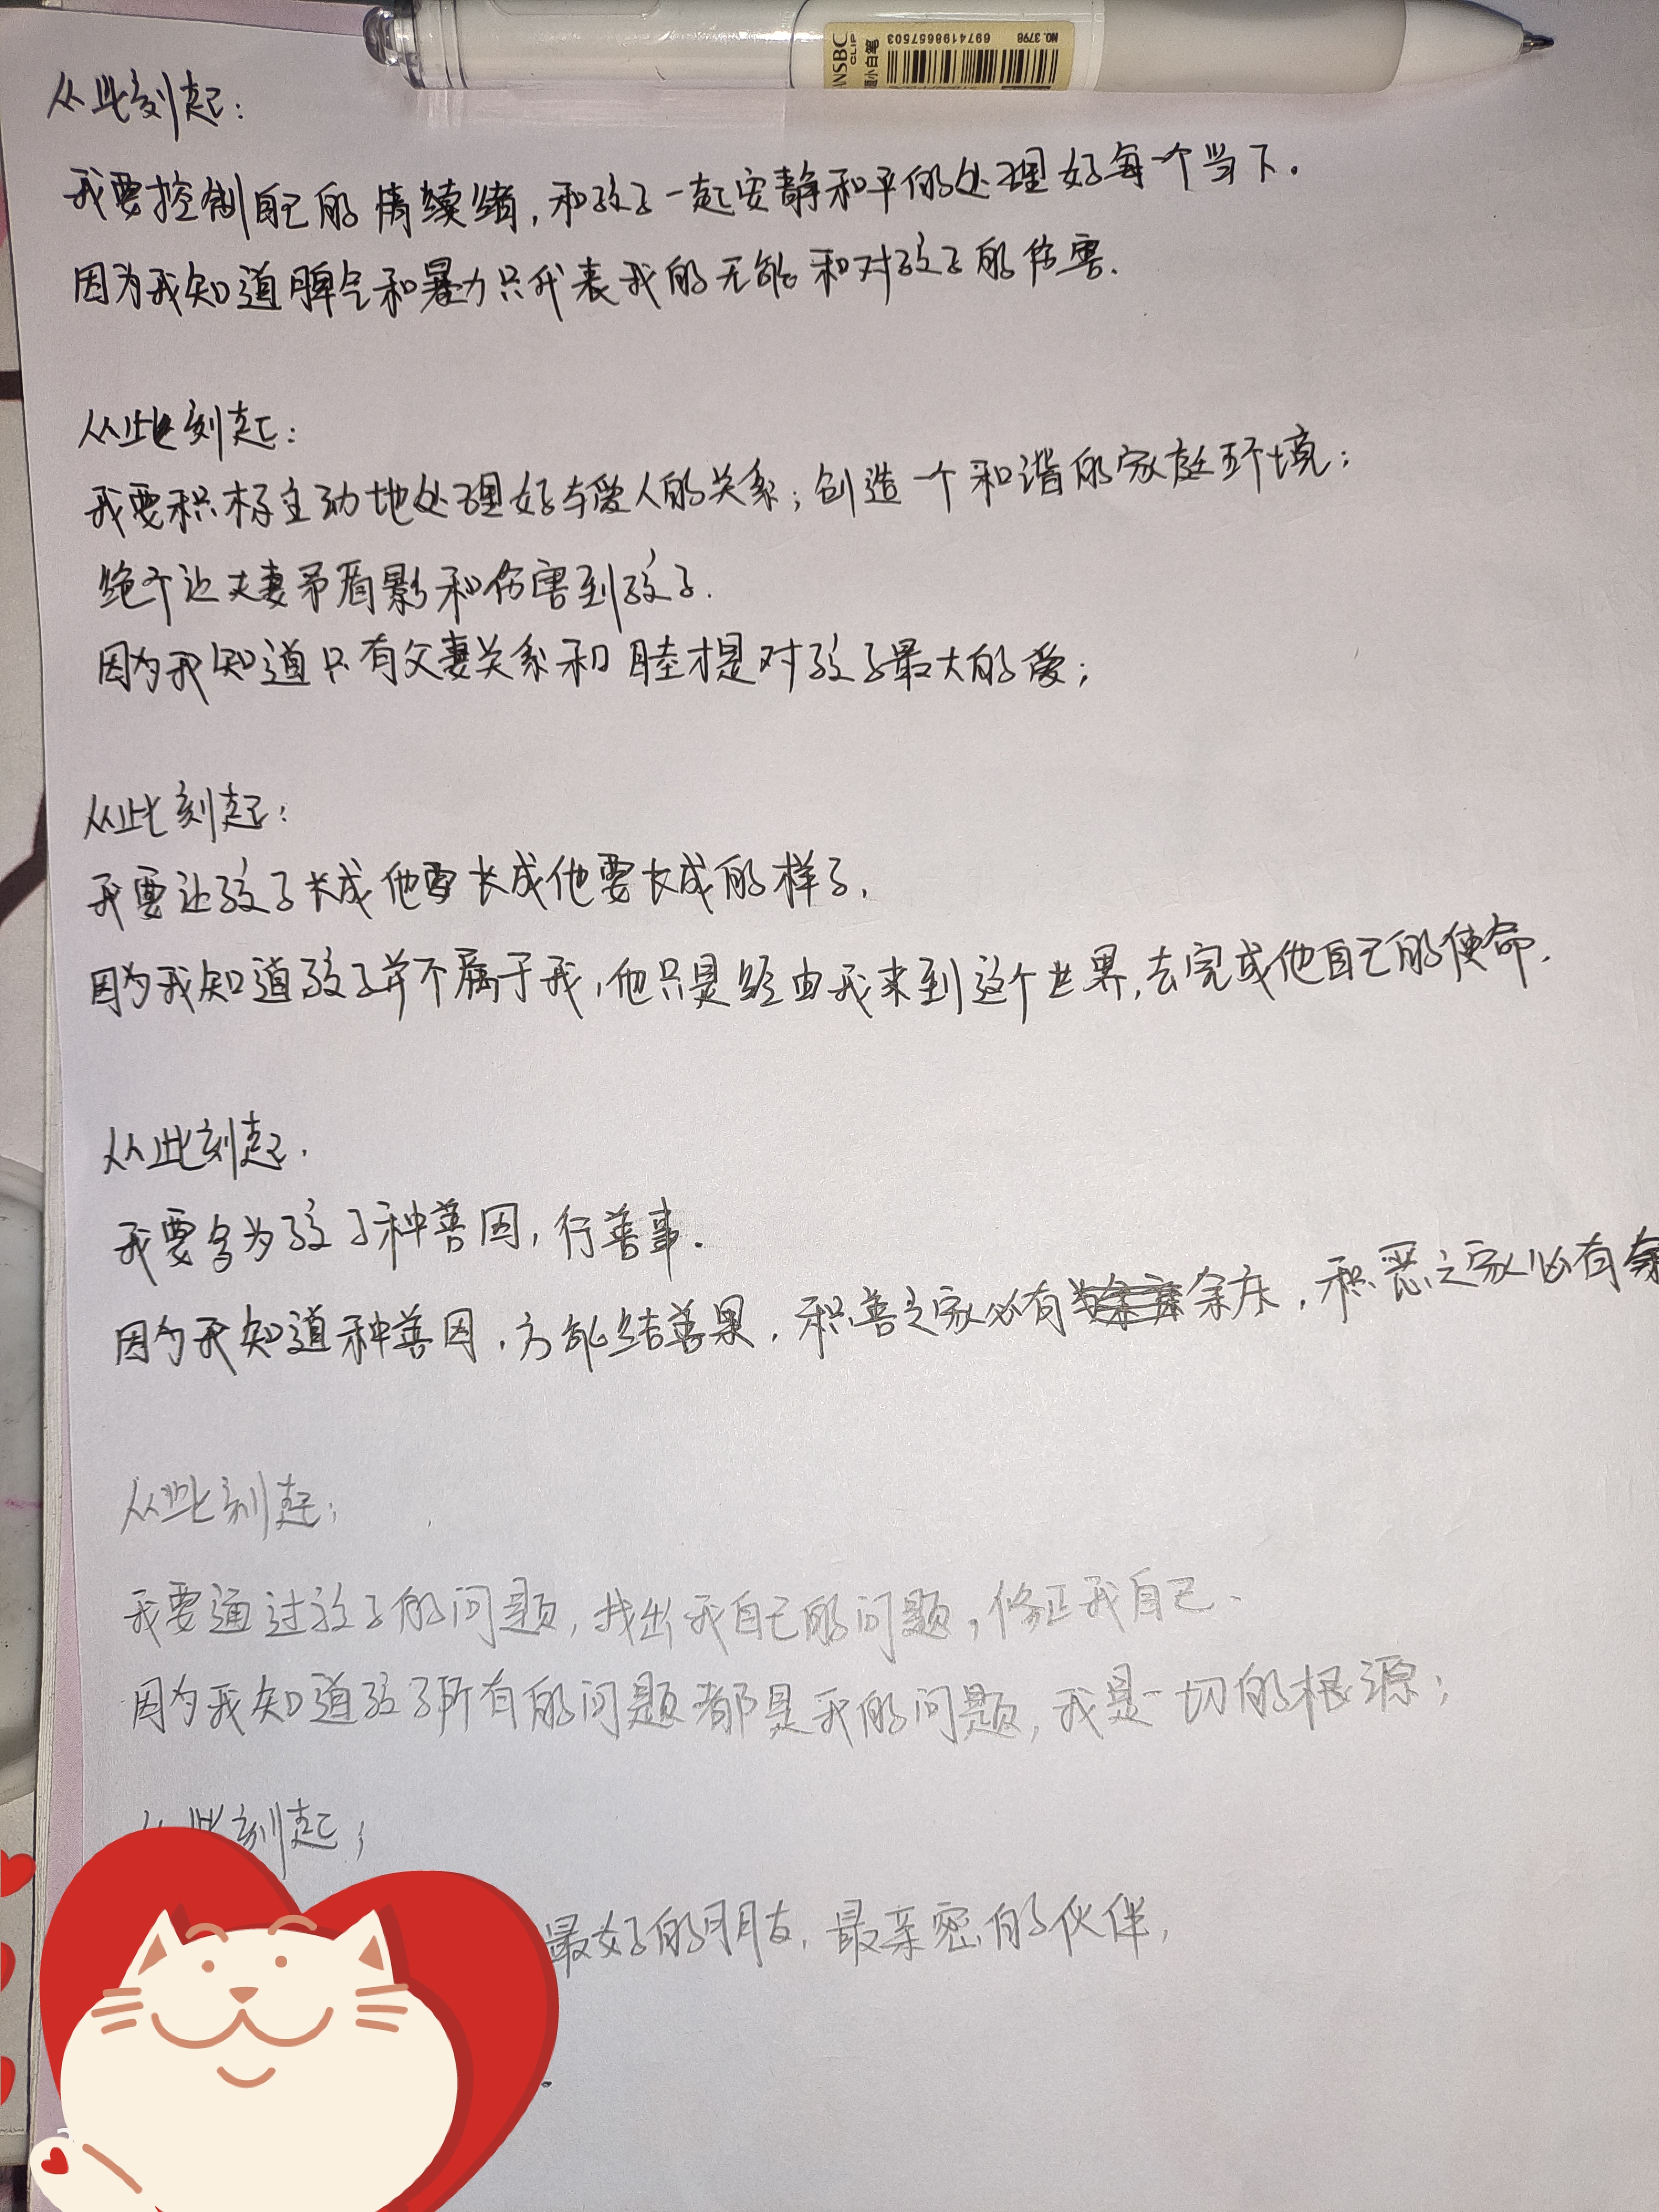 NSBC
CLIP
小白笔
6974198657503
NO. 3798
从此刻起:
我要控制自己的情续绪,和孩子一起安静和平的处理好每一个当下.
因为我知道脾气和暴力只代表我的无能和对孩子的伤害.
从此刻起:
我要积极主动地处理好与爱人的关系;创造一个和谐的家庭环境;
绝不让夫妻矛盾影和伤害到孩子.
因为我知道只有父妻关系和睦才是对孩子最大的爱;
从此刻起:
我要让孩子长成他要长成他要长成的样子,
因为我知道孩子并不属于我,他只是经由我来到这个世界,去完成他自己的使命.
从此刻起.
我要多为孩子种善因,行善事.
因为我知道种善因,方能结善果,积善之家必有余庆,积恶之家必有余
从此刻起;
我要通过孩子的问题,找出我自己的问题,修正我自己、
因为我知道孩子所有的问题都是我的问题,我是一切的根源;
从此刻起;
最好的朋友,最亲密的伙伴,